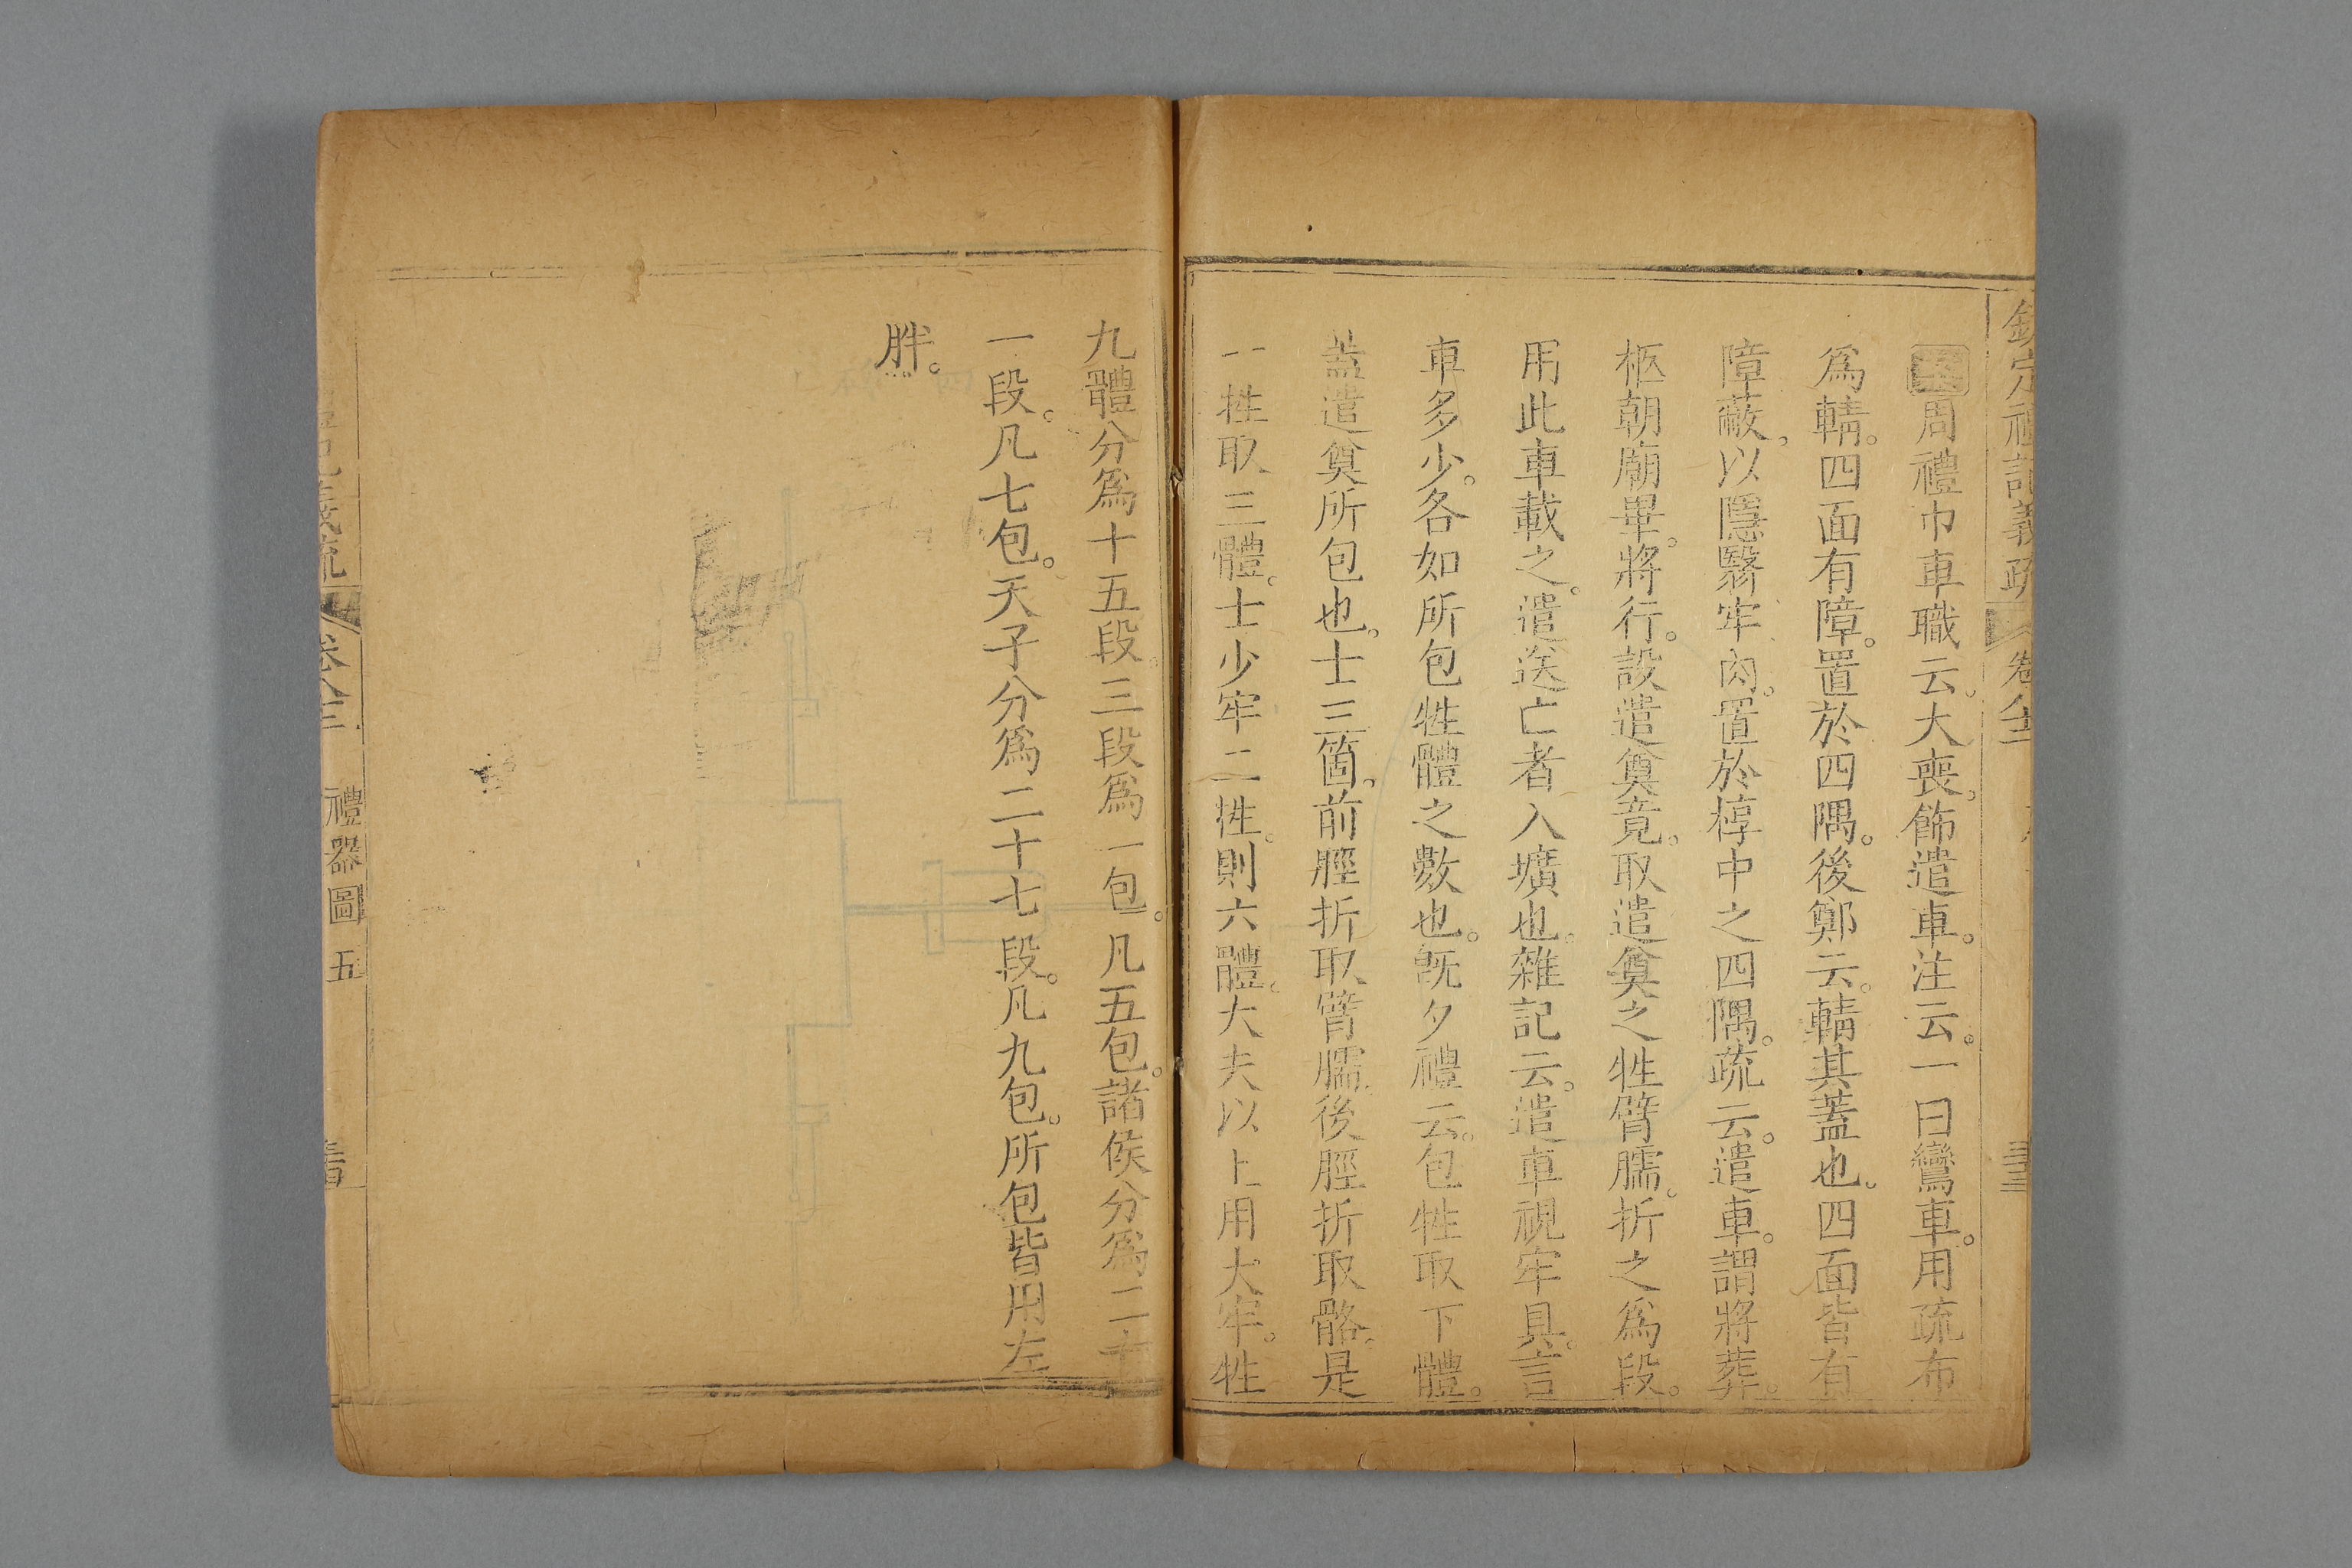 欽定禮記義疏 卷
周禮巾車職云。大喪。飾遣車。注云。一曰鸞車。用疏布
爲輤。四面有障。置於四隅。後鄭云。輤其蓋也。四面皆有
障蔽。以隱翳牢肉。置於椁中之四隅。疏云。遣車。謂將葬。
柩朝廟畢。將行。設遣奠竟。取遣奠之牲臂臑。折之爲段。
用此車載之。遣送亡者入壙也。雜記云。遣車視牢具。言
車多少。各如所包牲體之數也。旣夕禮云。包牲取下體。
蓋遣奠所包也。士三箇。前脛折取臂臑。後脛折取骼。是
一牲取三體。士少牢二牲。則六體。大夫以上用大牢。牲
九體分爲十五段。三段爲一包。凡五包。諸侯分爲二十
一段。凡七包。天子分爲二十七段。凡九包。所包皆用左
胖。
義疏 卷 禮器圖五